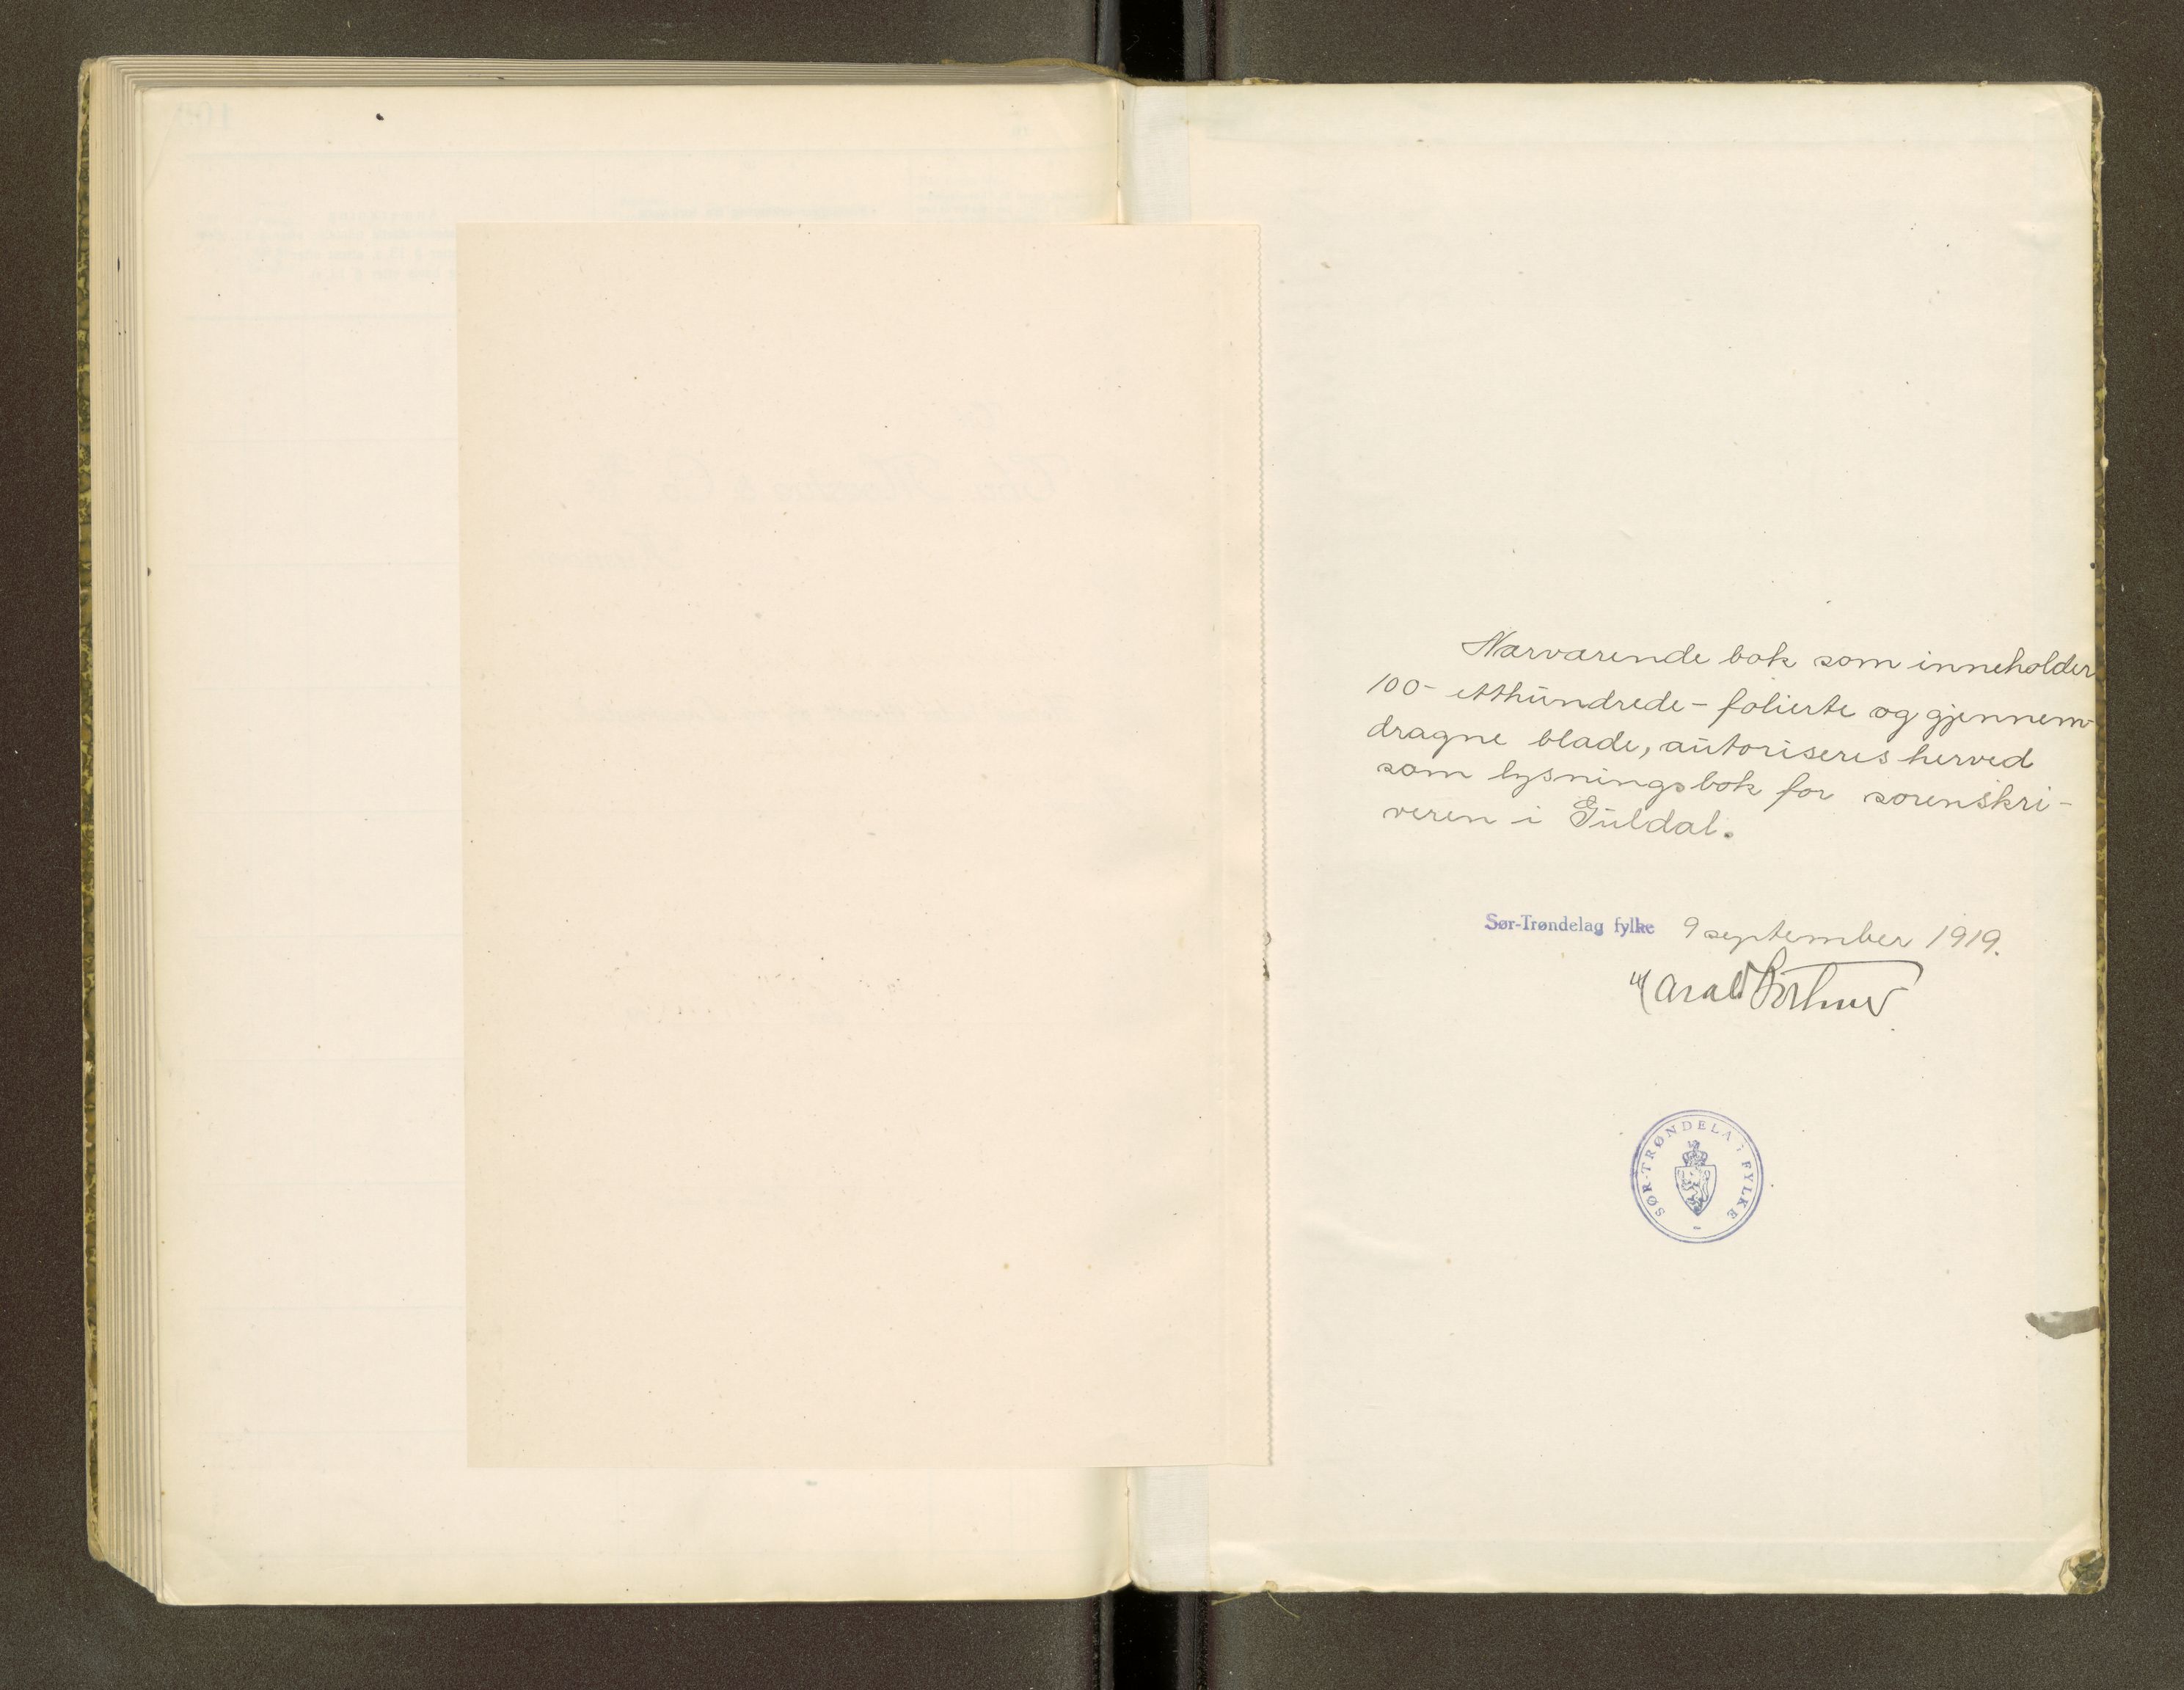 Nærværende bok som inneholder
100- etthundrede - folierte og gjennem-
dragne blade, autoriseres herved
som lysningsbok for sorenskri-
veren i Guldal.
Sør-Trøndelag fylke 9 september 1919.
Harald Bothner
SØR-TRØNDELAG FYLKE